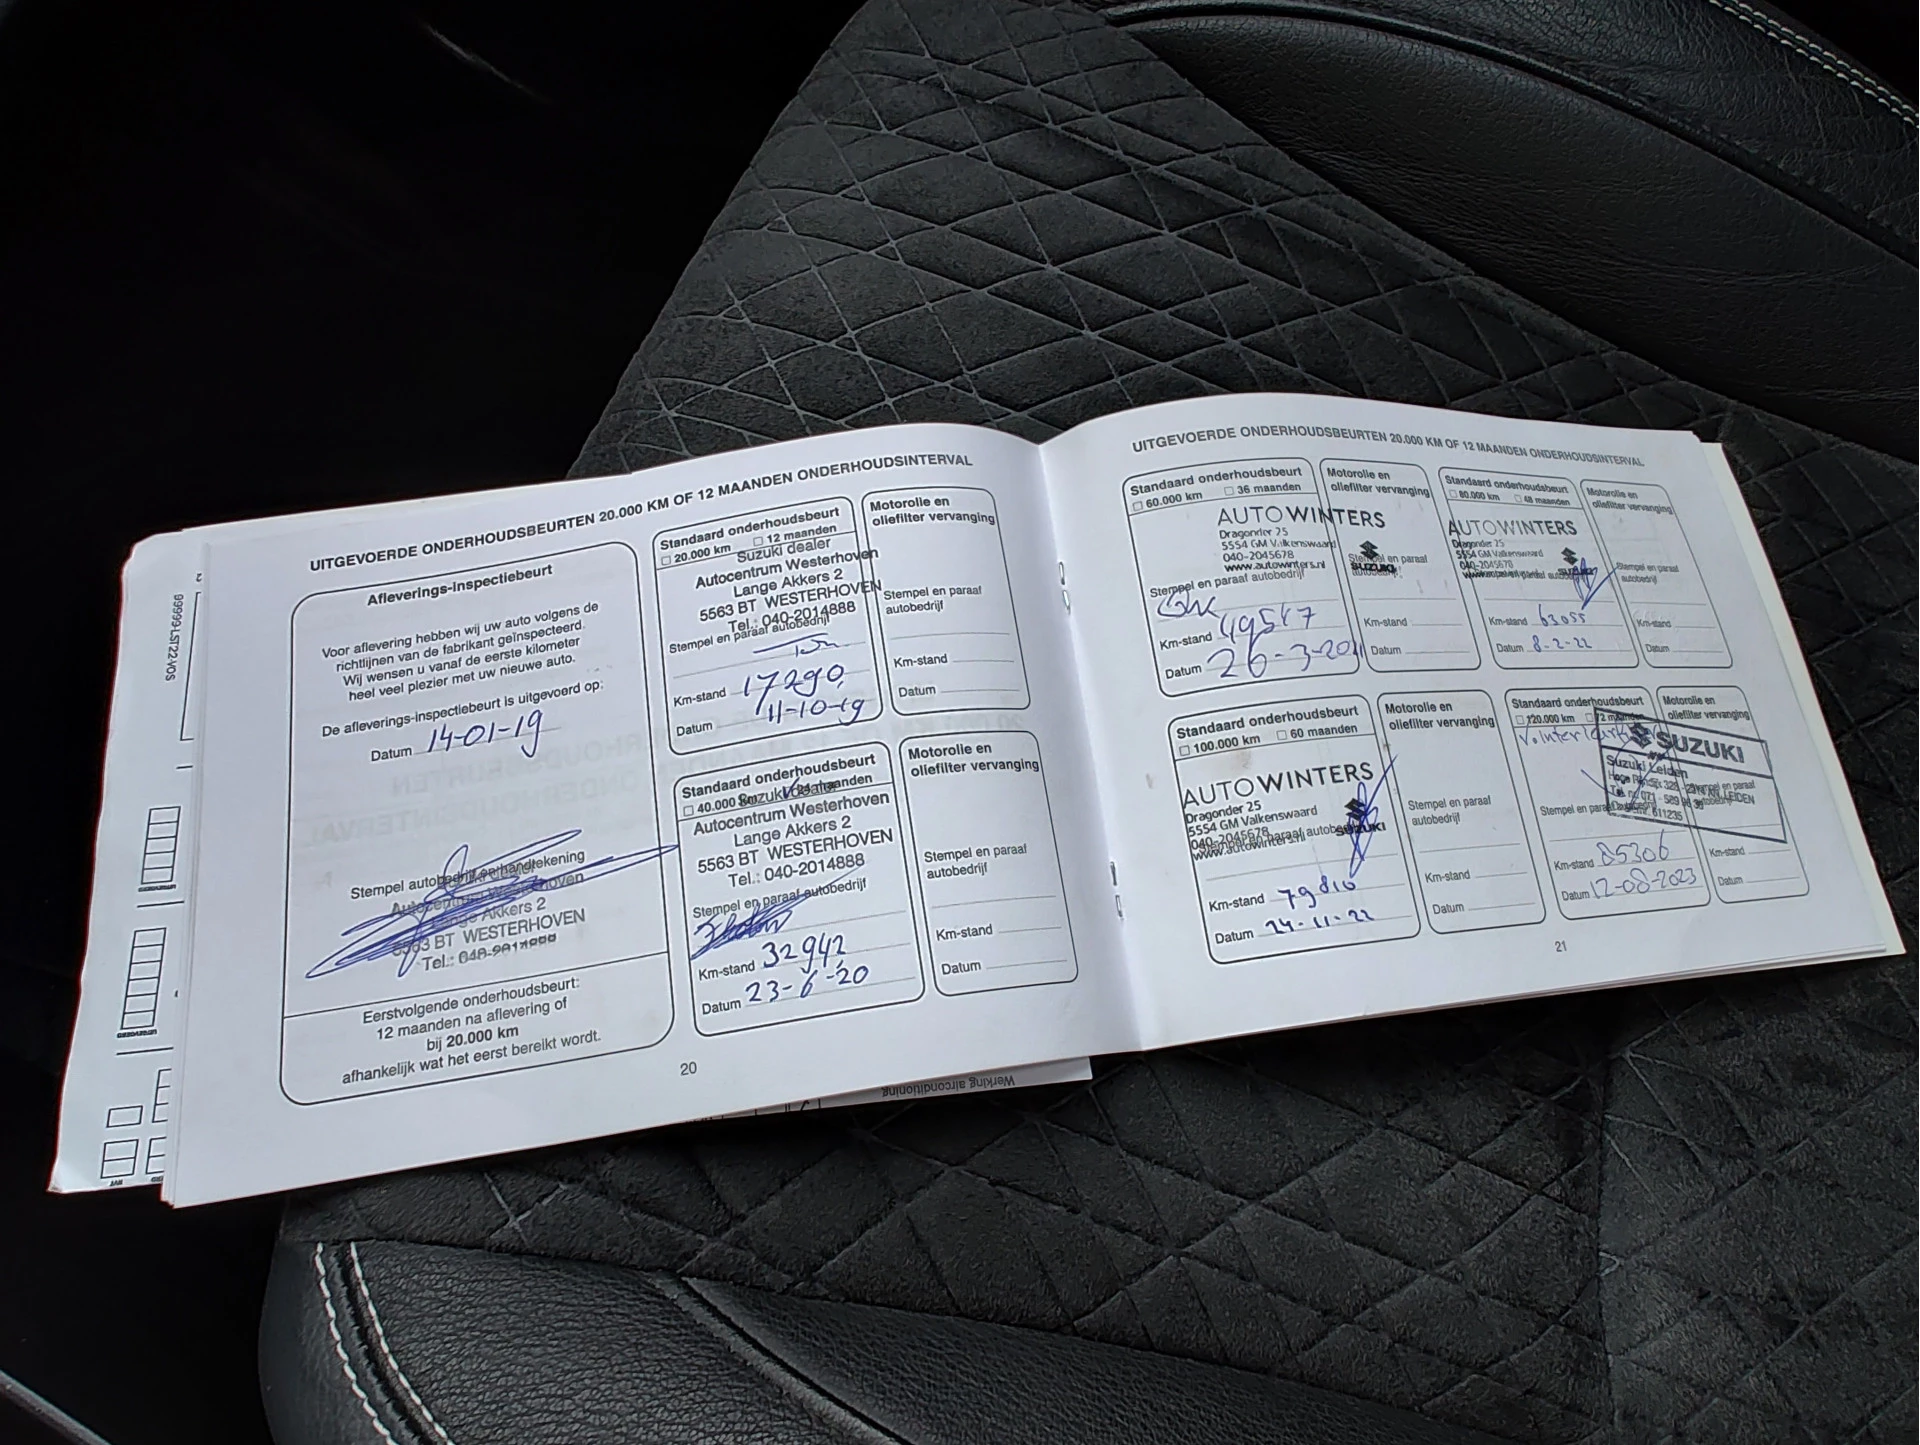 UITGEVOERDE ONDERHOUDSBEURTEN 20.000 KM OF 12 MAANDEN ONDERHOUDSINTERVAL
Afleverings-inspectiebeurt
Voor aflevering hebben wij uw auto volgens de
richtlijnen van de fabrikant geïnspecteerd.
Wij wensen u vanaf de eerste kilometer
heel veel plezier met uw nieuwe auto.
De afleverings-inspectiebeurt is uitgevoerd op:
Datum 14-01-19
Stempel autobedrijf en handtekening
Autocentrum Westerhoven
Lange Akkers 2
5563 BT WESTERHOVEN
Tel.: 040-2014888
Eerstvolgende onderhoudsbeurt:
12 maanden na aflevering of
bij 20.000 km
afhankelijk wat het eerst bereikt wordt.
Standaard onderhoudsbeurt
20.000 km 12 maanden
Suzuki dealer
Autocentrum Westerhoven
Lange Akkers 2
5563 BT WESTERHOVEN
Tel.: 040-2014888
Stempel en paraaf autobedrijf
Km-stand 17290
Datum 11-10-19
Motorolie en
oliefilter vervanging
Stempel en paraaf
autobedrijf
Km-stand
Datum
Standaard onderhoudsbeurt
40.000 km 24 maanden
Suzuki dealer
Autocentrum Westerhoven
Lange Akkers 2
5563 BT WESTERHOVEN
Tel.: 040-2014888
Stempel en paraaf autobedrijf
Km-stand 32942
Datum 23-6-'20
Motorolie en
oliefilter vervanging
Stempel en paraaf
autobedrijf
Km-stand
Datum
20
UITGEVOERDE ONDERHOUDSBEURTEN 20.000 KM OF 12 MAANDEN ONDERHOUDSINTERVAL
Standaard onderhoudsbeurt
60.000 km 36 maanden
AUTOWINTERS
Dragonder 25
5554 GM Valkenswaard
040-2045678
www.autowinters.nl
SUZUKI
Stempel en paraaf autobedrijf
Km-stand 49547
Datum 26-3-2021
Motorolie en
oliefilter vervanging
Stempel en paraaf
autobedrijf
Km-stand
Datum
Standaard onderhoudsbeurt
80.000 km 48 maanden
AUTOWINTERS
Dragonder 25
5554 GM Valkenswaard
040-2045678
SUZUKI
Km-stand 63055
Datum 8-2-22
Motorolie en
oliefilter vervanging
Stempel en paraaf
autobedrijf
Km-stand
Datum
Standaard onderhoudsbeurt
100.000 km 60 maanden
AUTOWINTERS
Dragonder 25
5554 GM Valkenswaard
040-2045678
www.autowinters.nl
SUZUKI
Stempel en paraaf autobedrijf
Km-stand 79810
Datum 24-11-22
Motorolie en
oliefilter vervanging
Stempel en paraaf
autobedrijf
Km-stand
Datum
Standaard onderhoudsbeurt
120.000 km 72 maanden
SUZUKI
Suzuki Leiden
LEIDEN
Stempel en paraaf
Km-stand 85306
Datum 12-08-2023
Motorolie en
oliefilter vervanging
Km-stand
Datum
21
99999-LST22-VDS
Werking airconditioning